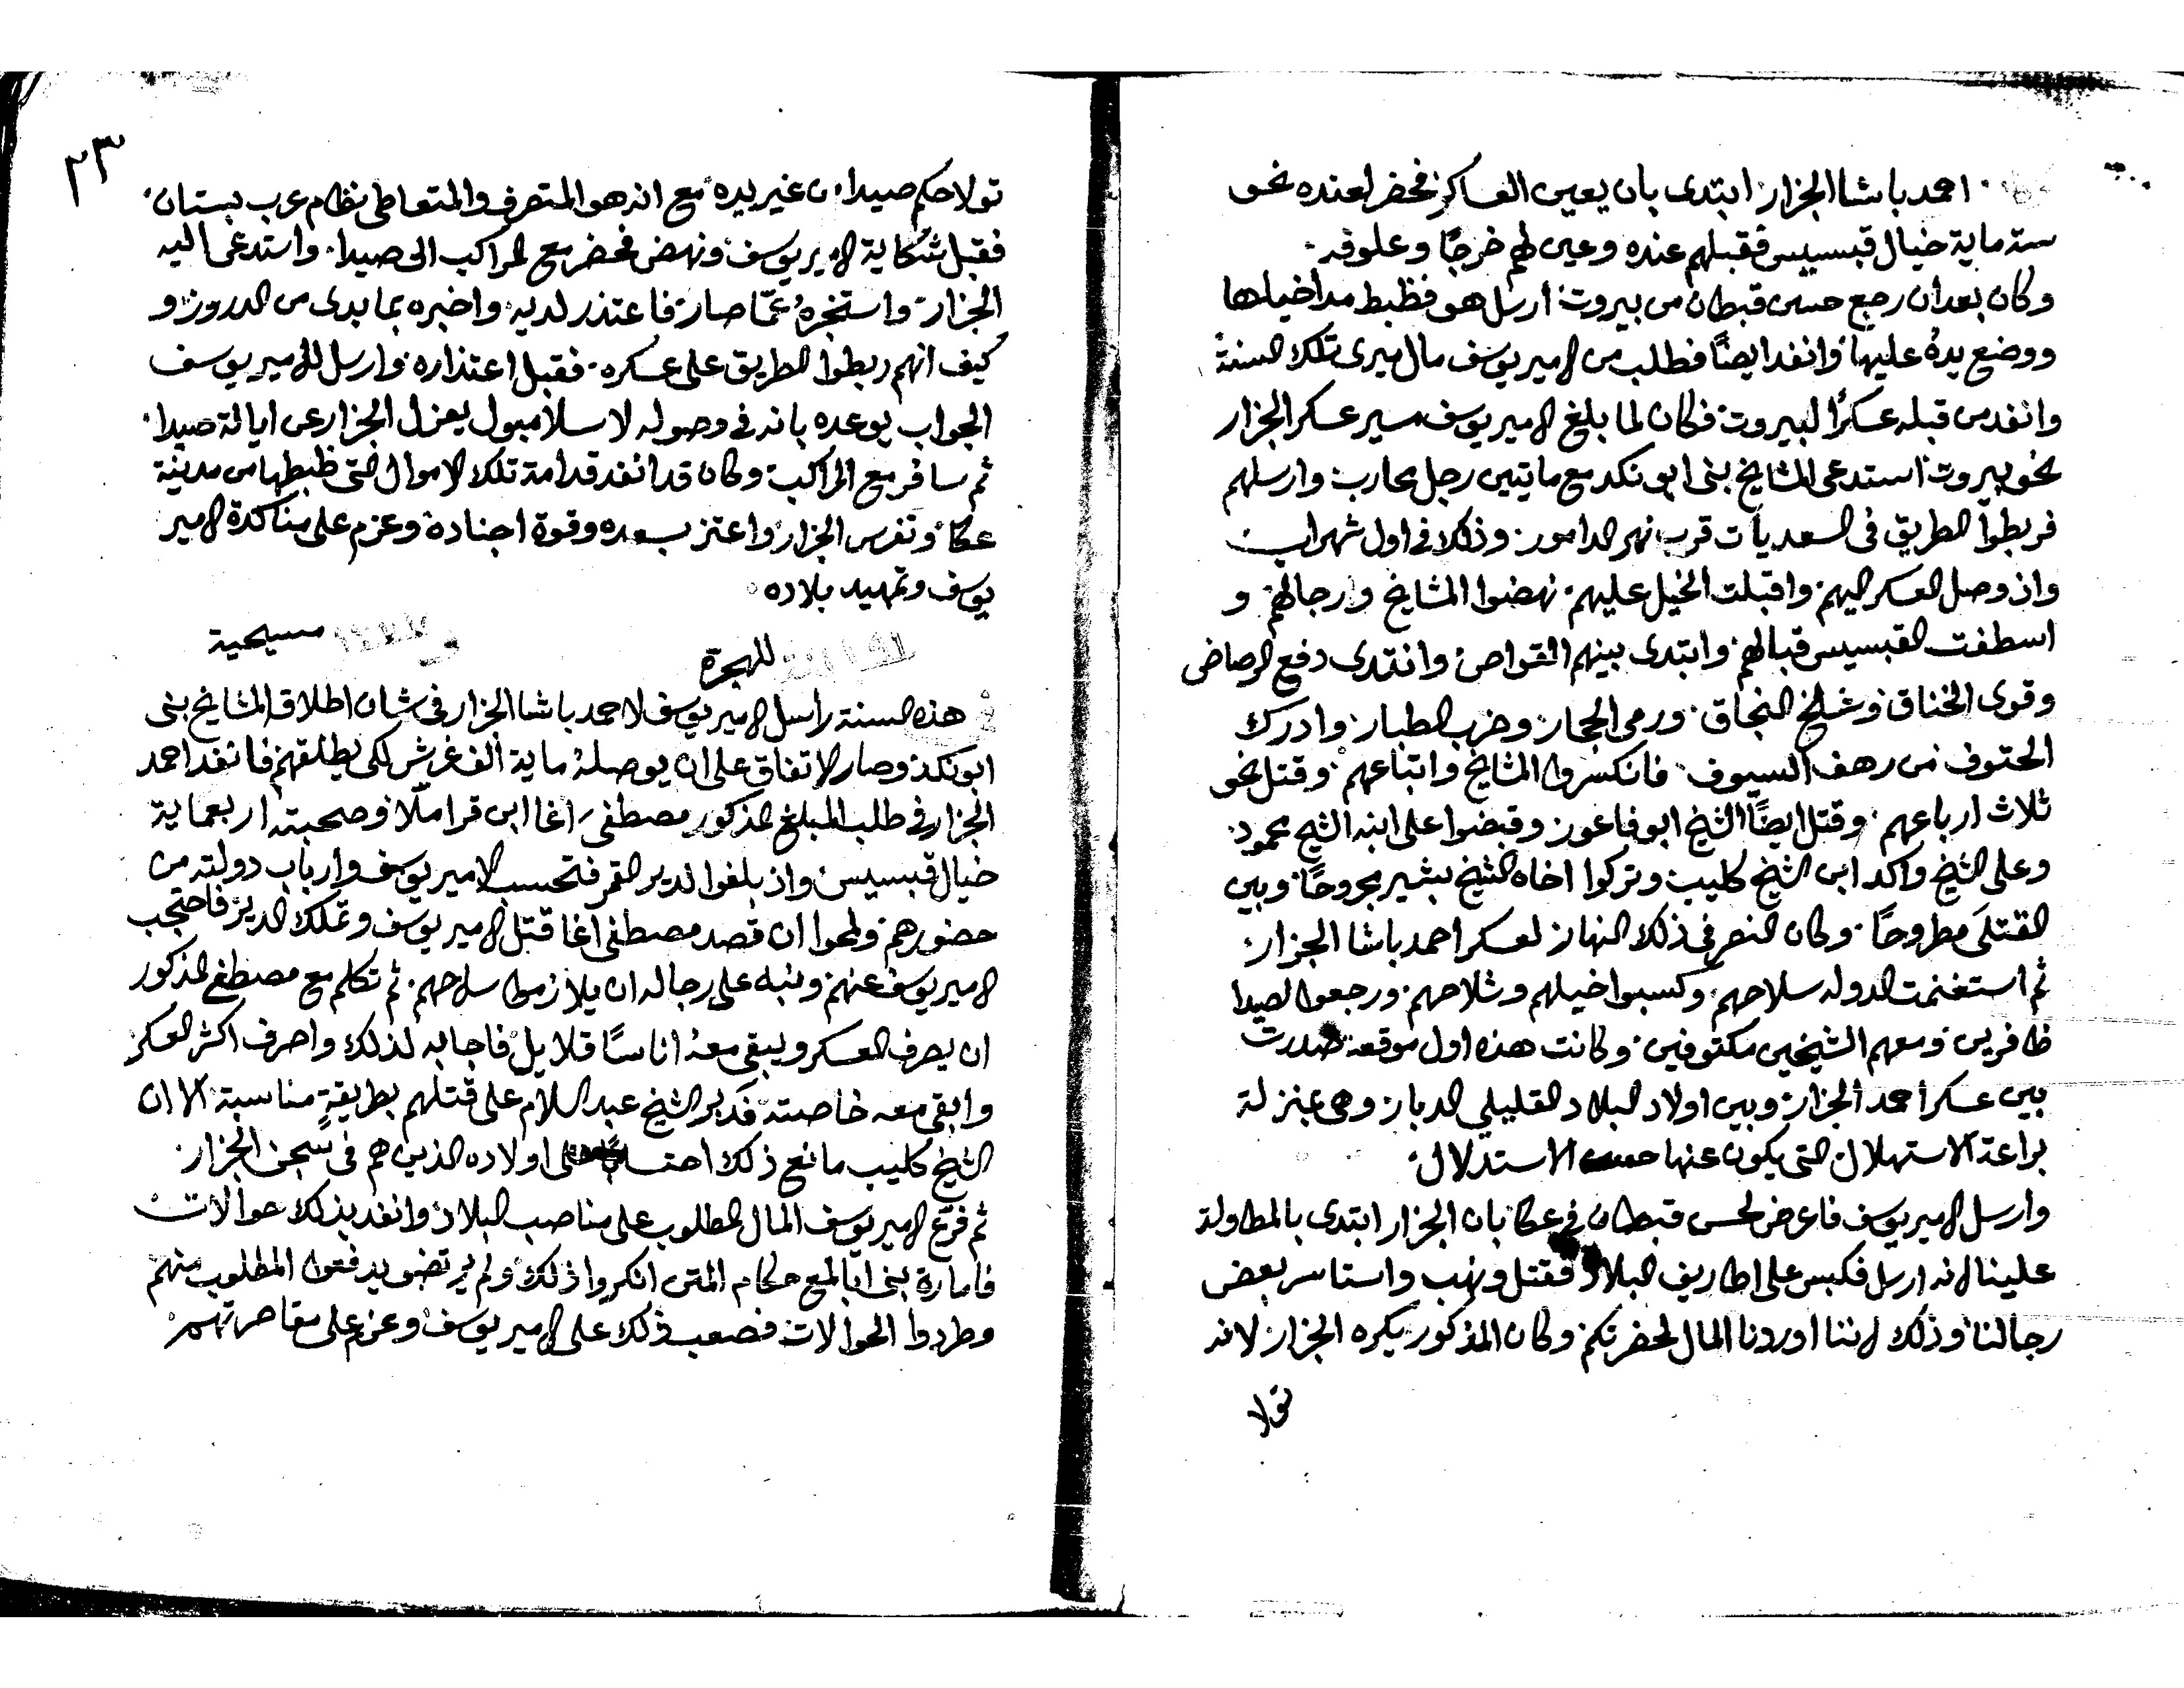 احمد باشا الجزار ابتدى بان يعين العساكر فحضر لعنده نحو
ستة ماية خيال قبسييس فقبلهم عنده وعين لهم خرجًا وعلوفه
وكان بعد ان رجع حسن قبطان من بيروت ارسل هو فظبط مداخيلها
ووضع يدهُ عليها وانفد ايضًا فطلب من الامير يوسف مال ميرى تلك السنة
وانفد من قبله عسكرًا لبيروت فكان لما بلغ الامير يوسف مسير عسكر الجزار
نحو بيروت استدعى المشايخ بنى ابو نكد مع مايتين رجل محارب وارسلهم
فربطوا الطريق فى السعديات قرب نهر الدامور وذلك فى اول شهر اب
واذ وصل العسكر اليهم واقبلت الخيل عليهم نهضوا المشايخ ورجالهم و
اسطفت القبسيس قبالهم وابتدى بينهم القواص وانتدى دفع الرصاص
وقوى الخناق وشلخ النجاق ورمى الحجار وضرب الطبار وادرك
الحتوف من رهف السيوف فانكسروا المشايخ واتباعهم وقتل نحو
ثلاث ارباعهم وقتل ايضًا الشيخ ابو فاعور وقبضوا على ابنه الشيخ محمود
وعلى الشيخ واكد ابن الشيخ كليب وتركوا اخاه الشيخ بشير مجروحًا وبين
القتلى مطروحًا وكان النصر فى ذلك النهار لعسكر احمد باشا الجزار
ثم استغنمت الدوله سلاحهم وكسبوا خيلهم وشلاحهم ورجعوا لصيدا
ظافرين ومعهم الشيخين مكتوفين وكانت هذه اول موقعة صدرت
بين عسكر احمد الجزار وبين اولاد البلاد القليلي الدبار وهى بمنزلة
براعة الاستهلال التى يكون عنها حسن الاستدلال
وارسل الامير يوسف فاعرض لحسن قبطان فى عكا بان الجزار ابتدى بالمطاولة
علينا لانه ارسل فكبس على اطاريف البلاد فقتل ونهب واستاسر بعض
رجالنا وذلك لاننا اوردنا المال لحضرتكم وكان المذكور يكره الجزار لانه
تولا
٢٣
تولا حكم صيدا من غير يده مع انه هو المتصرف والمتعاطى نظام عرب بستان
فقبل شكاية الامير يوسف ونهض فحضر مع المراكب الى صيدا واستدعى اليه
الجزار واستخبرهُ عمّا صار فاعتذر لديه واخبره بما بدى من الدروز و
كيف انهم ربطوا الطريق على عسكره فقبل اعتذاره وارسل للامير يوسف
الجواب يوعده بانه فى وصوله لاسلامبول يعزل الجزار عن ايالة صيدا
ثم سافر مع المراكب وكان قد انفد قدامه تلك الاموال التى ظبطها من مدينة
عكا وتفرس الجزار واعتز بسعده وقوة اجناده وعزم على مناكدة الامير
يوسف وتمهيد بلاده
١١٩١ للهجرة ١٧٧٧ مسيحية
هذه السنة راسل الامير يوسف لاحمد باشا الجزار فى شان اطلاق المشايخ بنى
ابو نكد وصار الاتفاق على ان يوصلهُ ماية ألف غرش لكى يطلقهم فانفد احمد
الجزار فى طلب المبلغ المذكور مصطفى اغا ابن قرا ملّا وصحبته اربعماية
خيال قبسيس واذ بلغوا لدير القمر فتحسب الامير يوسف وارباب دولته من
حضورهم ولمحوا ان قصد مصطفى اغا قتل الامير يوسف وتملك الدير فاحتجب
الامير يوسف عنهم ونبه على رجاله ان يلازموا سلاحهم ثم تكلم مع مصطفى المذكور
ان يصرف العسكر ويبقى معهُ اناسًا قلايل فاجابه لذلك واصرف اكثر العسكر
وابقى معه خاصته فدبر الشيخ عبد السلام على قتلهم بطريقةٍ مناسبة الا ان
الشيخ كليب مانع ذلك على اولاده الذين هم فى سجن الجزار
ثم فرّع الامير يوسف المال المطلوب على مناصب البلاد وانفد بذلك حوالات
فامارة بنى ابا لمع حكام المتن انكروا ذلك ولم يرتضو يدفعوا المطلوب منهم
وطردوا الحوالات فصعب ذلك على الامير يوسف وعزم على مقاصرتهم